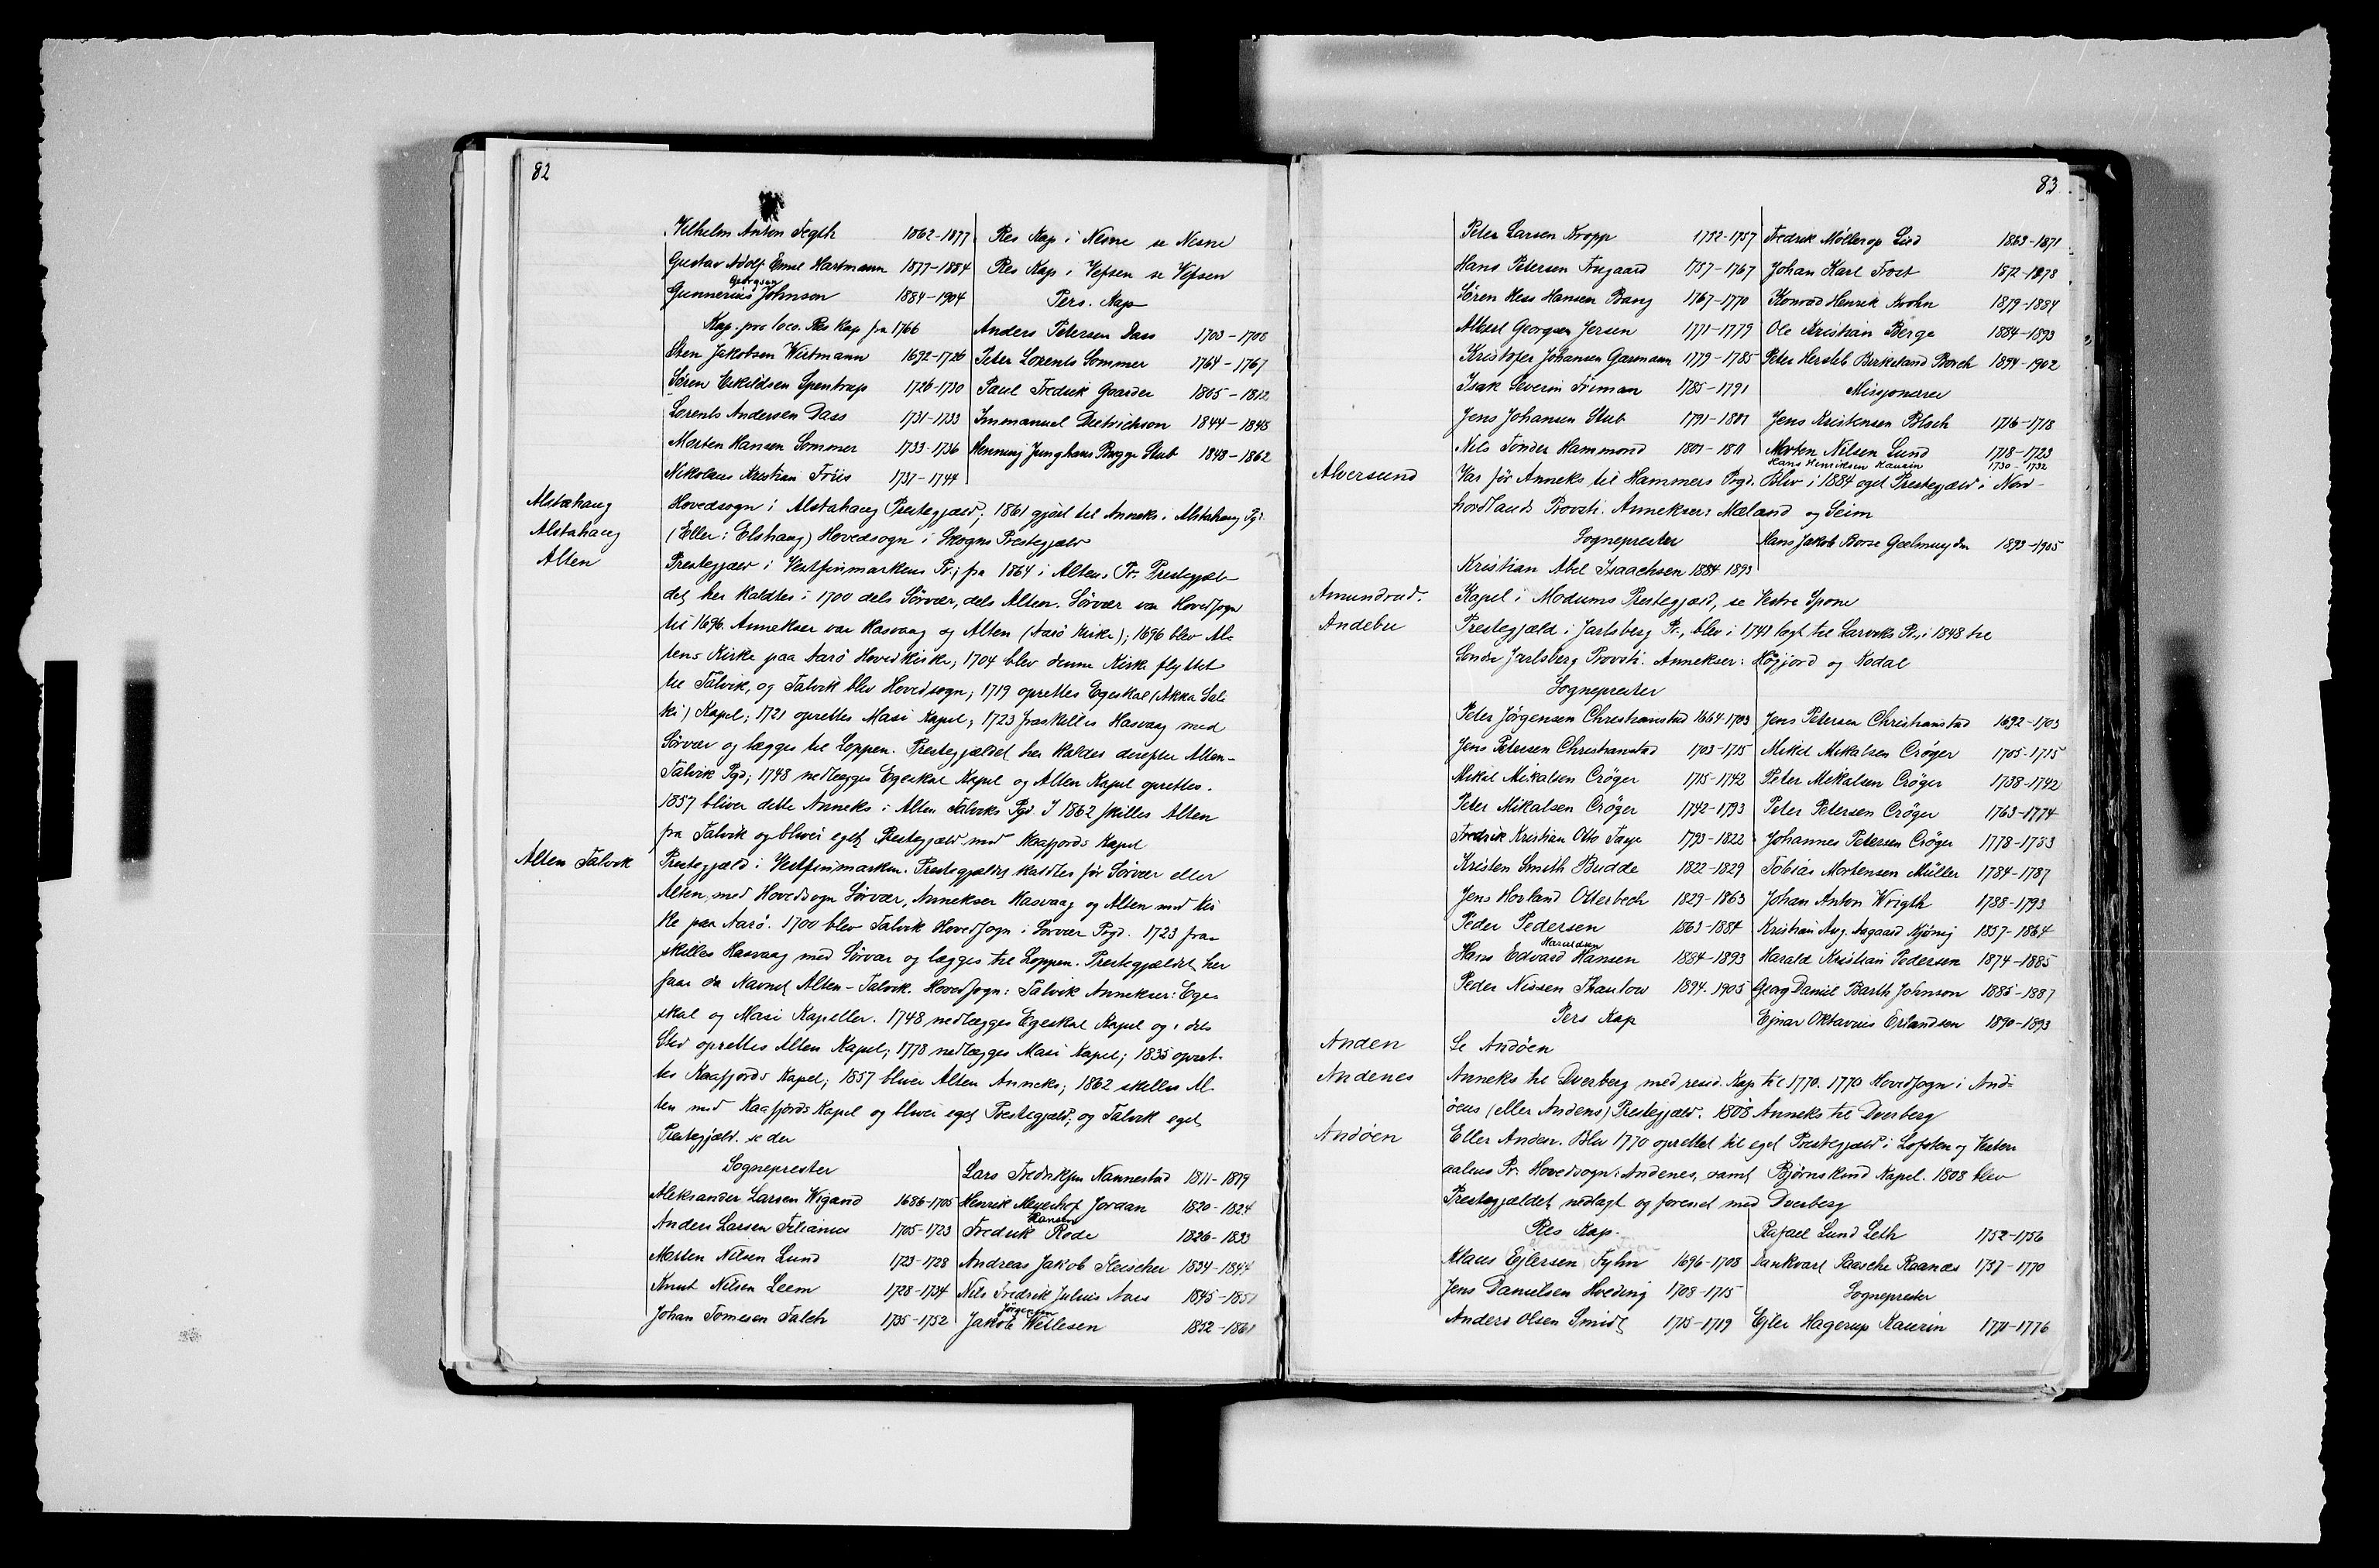 82
Vilhelm Anton Fegth 1862-1877
Gustav Adolf Emil Hartmann 1877-1884
Georgsen
Gunnerius Johnson 1884-1904
Kap. pro loco. Res Kap fra 1766
Sten Jakobsen Wirtmann 1692-1726
Søren Eskildsen Spentrup 1726-1730
Lorents Andersen Dass 1731-1733
Morten Hansen Sommer 1733-1736
Nikolaus Kristian Friis 1737-1744
Res Kap i Nesne se Nesne
Res Kap i Vefsen se Vefsen
Pers. Kap
Anders Petersen Dass 1703-1708
Peter Lorents Sommer 1764-1767
Paul Fredrik Gaarder 1805-1812
Immanuel Dietrichson 1844-1845
Henning Junghans Bugge Stub 1848-1862
Alstahaug Hovedsogn i Alstahaug Prestegjæld; 1861 gjort til Anneks i Alstahaug Pgd.
Alstahaug (Eller: Elshaug) Hovedsogn i Skogns Prestegjæld
Alten Prestegjæld i Vestfinmarkens Pr.; fra 1864 i Altens Pr. Prestegjæl-
det her kaldtes i 1700 dels Sörvær, dels Alten. Sörvær var Hovedsogn
til 1696. Annekser var Hasvaag og Alten (Aarö Kirke); 1696 blev Al-
tens Kirke paa Aarö Hovedkirke, 1704 blev denne Kirke flyttet
til Talvik, og Talvik blev Hovedsogn; 1719 oprettes Egeskal (Akka Sal-
ki) Kapel; 1721 oprettes Masi Kapel; 1723 fraskilles Hasvaag med
Sörvær og lægges til Loppen. Prestegjældet her kaldes derefter Alten-
Talvik Pgd; 1748 nedlægges Egeskal Kapel og Alten Kapel oprettes.
1857 bliver dette Anneks i Alten Talviks Pgd. I 1862 skilles Alten
fra Talvik og bliver eget Prestegjæld med Kaafjords Kapel
Alten Talvik Prestegjæld i Vestfinmarken. Prestegjældet kaldtes för Sörvær eller
Alten, med Hovedsogn Sörvær, Annekser Hasvaag og Alten med Kir
ke paa Aarö. 1700 blev Talvik Hovedsogn i Sörvær Pgd. 1723 fra-
skilles Hasvaag med Sörvær og lægges til Loppen. Prestegjældet her
faar da Navnet Alten-Talvik. Hovedsogn: Talvik Annekser: Ege-
skal og Masi Kapeller. 1748 nedlægges Egeskal Kapel og i dets
Sted oprettes Alten Kapel; 1778 nedlægges Masi Kapel; 1835 opret-
tes Kaafjords Kapel; 1857 bliver Alten Anneks; 1862 skilles Al-
ten med Kaafjords Kapel og bliver eget Prestegjæld; og Talvik eget
Prestegjæld. se der
Sogneprester
Aleksander Larsen Wigand 1686-1705
Anders Larsen 1705-1723
Morten Nilsen Lund 1723-1728
Knut Nilsen Leem 1728-1734
Johan Tomesen Falch 1735-1752
Lars Fredriksen Nannestad 1811-1819
Henrik Meyerhof Jordan 1820-1824
Hansen
Fredrik Rode 1826-1833
Andreas Jakob Fleischer 1834-1844
Nils Fredrik Julius Aars 1845-1851
Jörgensen
Jakob Wetlesen 1852-1861
83
Peter Larsen Kropp 1752-1757
Hans Petersen Frugaard 1757-1767
Sören Hess Hansen Bang 1767-1770
Mikkel Georgsen Jersen 1771-1779
Kristofer Johansen Garmann 1779-1785
Isak Severin Friman 1785-1791
Jens Johansen Stub 1791-1801
Nils Tönder Hammond 1801-1811
Fredrik Möllerop Lied 1863-1871
Johan Karl Trost 1872-1878
Konrad Henrik Krohn 1879-1884
Ole Kristian Berge 1884-1893
Peter Hersleb Birkeland Borch 1894-1902
Missjonærer
Jens Kristensen Bloch 1716-1718
Morten Nilsen Lund 1718-1723
Hans Henriksen Kaurin 1730-1732
Alversund Var för Anneks til Hammers Prgd. Blev i 1884 eget Prestegjæld i Nord-
hordlands Provsti. Annekser: Mæland og Seim
Sogneprester
Kristian Abel Isaachsen 1884-1893
Hans Jakob Borse Gælmuyden 1893-1905
Amundrud. Kapel i Modums Prestegjæld, se Vestre Spone
Andebu Prestegjæld i Jarlsberg Pr., blev i 1741 lagt til Larviks Pr., i 1848 til
Söndre Jarlsberg Provsti. Annekser: Höijord og Kodal
Sogneprester
Peter Jörgensen Christianstad 1664-1703
Jens Petersen Christianstad 1703-1715
Mikel Mikalsen Cröger 1715-1742
Peter Mikalsen Cröger 1742-1793
Fredrik Kristian Otto Taye 1793-1822
Kristen Smith Budde 1822-1829
Jens Hovland Otterbech 1829-1863
Peder Pedersen 1863-1884
Haraldsen
Hans Edvard Hansen 1884-1893
Peder Nissen Thaulow 1894-1905
Pers Kap
Jens Petersen Christianstad 1692-1703
Mikel Mikalsen Cröger 1705-1715
Peter Mikalsen Cröger 1738-1742
Peter Petersen Cröger 1763-1774
Johannes Petersen Cröger 1778-1783
Tobias Mortensen Müller 1784-1787
Johan Anton Wrigth 1788-1793
Kristian Aug. Aagaard Njönig 1857-1864
Harald Kristian Pedersen 1874-1885
Georg Daniel Barth Johnson 1885-1887
Ejnar Oktavius Erlandsen 1890-1893
Anden Se Andöen
Andenes Anneks til Dverberg med resid. Kap til 1770. 1770 Hovedsogn i And-
öens (eller Andens) Prestegjæld. 1808 Anneks til Dverberg
Andöen Eller Anden. Blev 1770 oprettet til eget Prestegjæld i Lofoten og Vester-
aalens Pr. Hovedsogn: Andenes, samt Björnskind Kapel. 1808 blev
Prestegjældet nedlagt og forenet med Dverberg
Res Kap.
Klaus Ejlersen Fyhn 1696-1708
Jens Danielsen Hveding 1708-1715
Anders Olsen Smidt 1715-1719
Rafael Lund Leth 1752-1756
Dankvart Paasche Raanæs 1757-1770
Sogneprester
Ejler Hagerup Kaurin 1771-1776